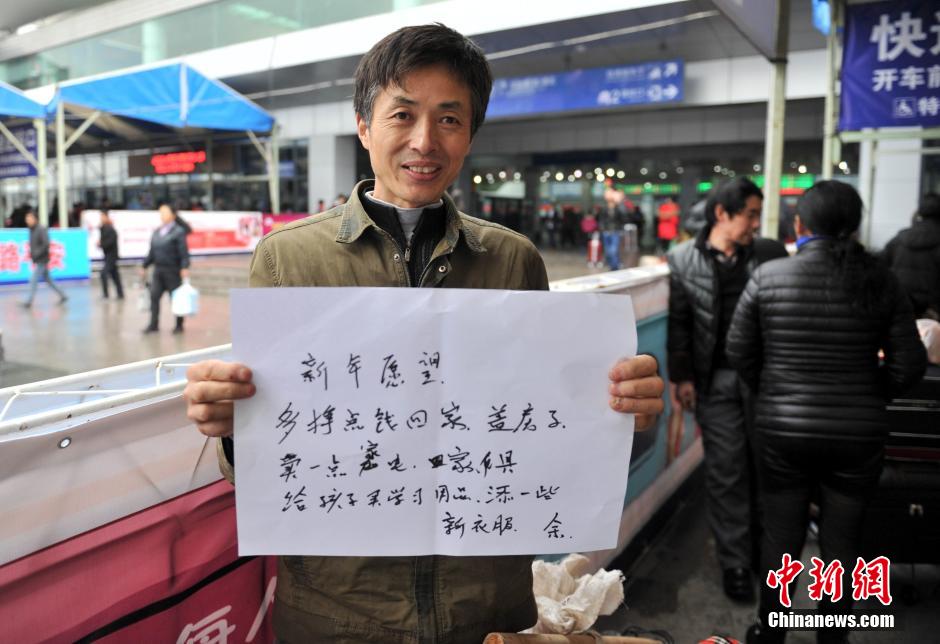 新年愿望.
多挣点钱回家、盖房子、
卖一点家电、 家俱
给孩子买学习用品、添一些
新衣服. 余.
快
开车前
特
路平安
中新网
Chinanews.com
中新网
Chinanews.com